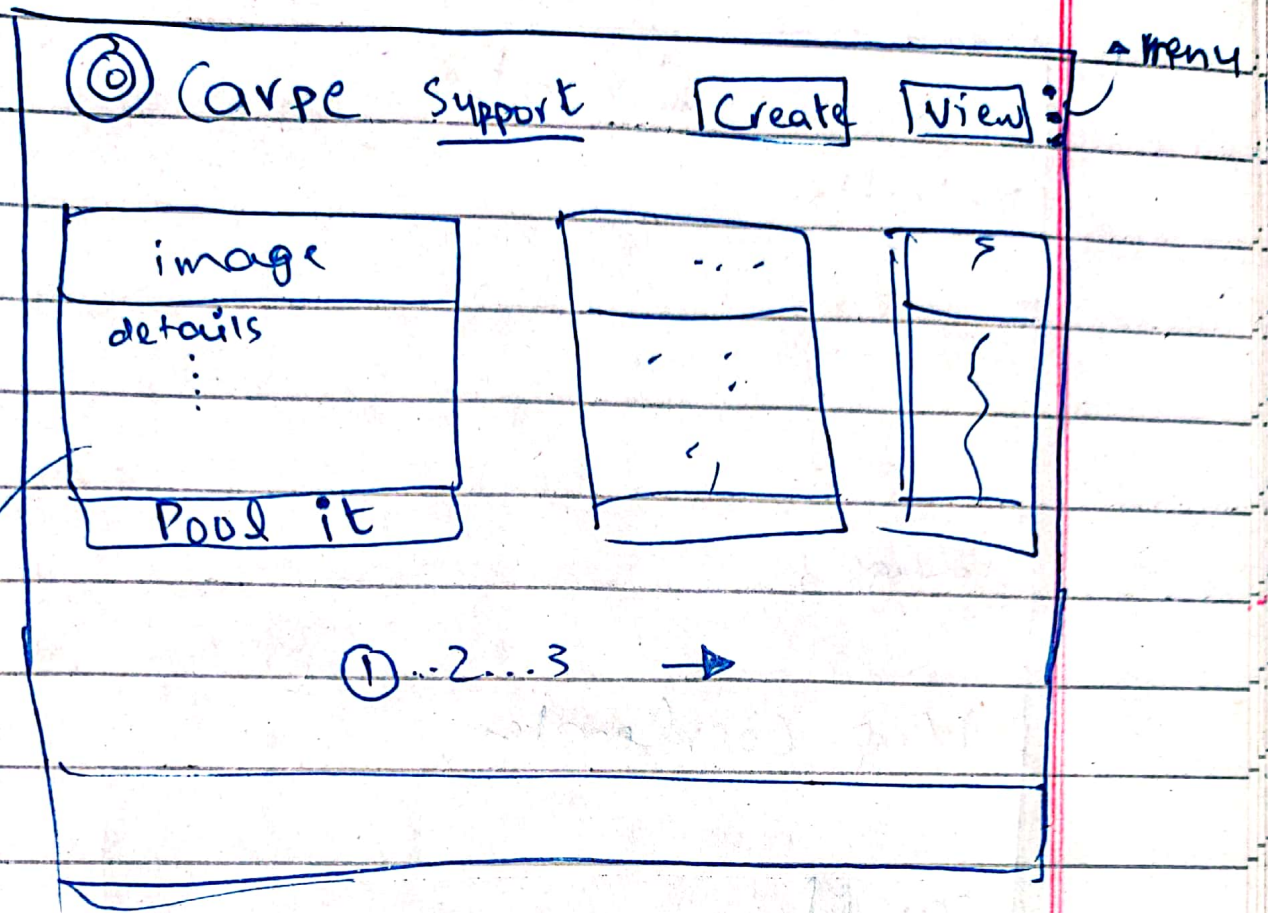 menu
Carpe Support Create View
image
details
Pool it
1...2...3